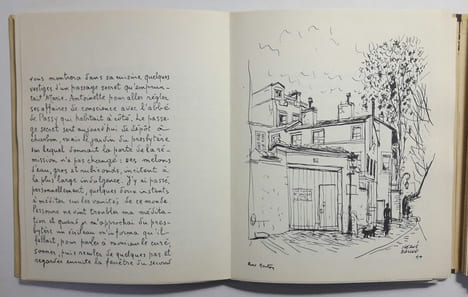 vous montrera dans sa cuisine, quelques
vestiges d'un passage secret qu'emprun-
tait Marie-Antoinette pour aller régler
ses affaires de conscience avec l'abbé
de Passy qui habitait à côté. Le passa-
ge secret sert aujourd'hui de dépôt à
charbon, mais le jardin du presbytère
sur lequel donnait la porte de la ré-
mission n'a pas changé : ses melons
d'eau, gros et rubiconds, incitent à
la plus large indulgence. J'y ai passé,
personnellement, quelques doux instants
à méditer sur les vanités de ce monde.
Personne ne vint troubler ma médita-
tion et quand je m'approchai du pres-
bytère un écriteau m'informa qu'il
fallait, pour parler à monsieur le curé,
sonner, puis reculer de quelques pas et
regarder ensuite la fenêtre du second
Rue Berton